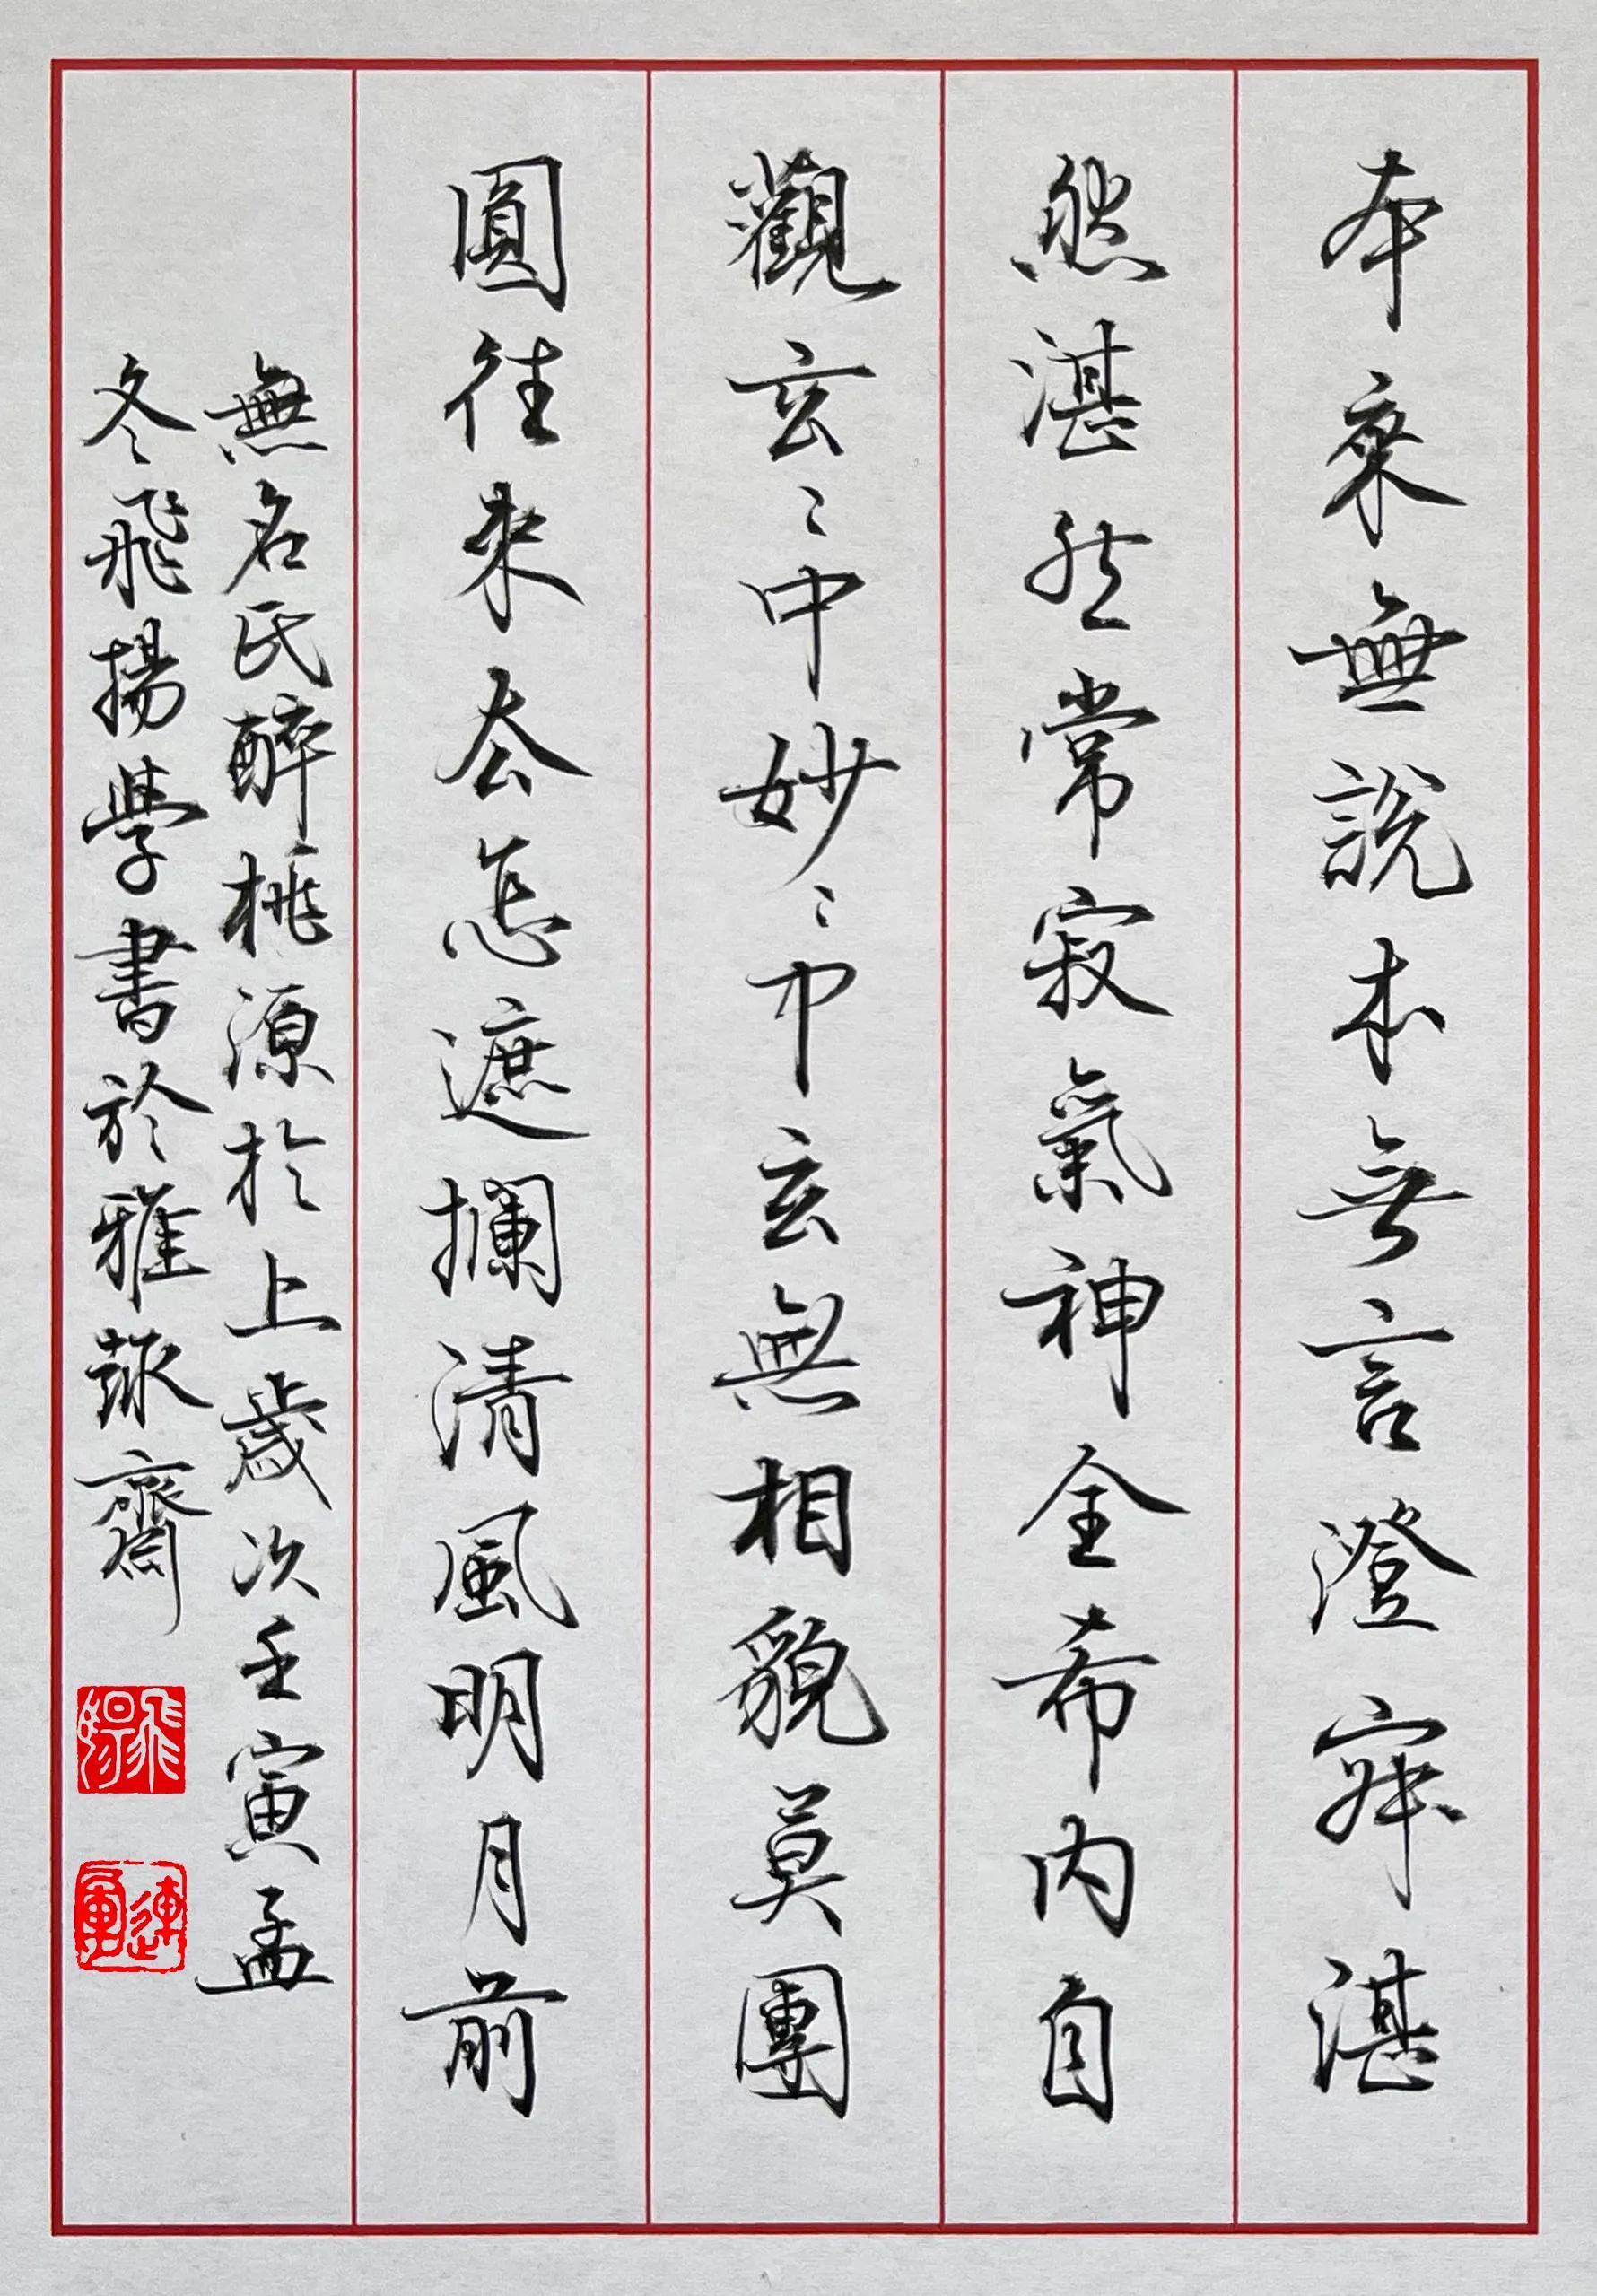 本來無說本無言澄寂湛
然湛然常寂氣神全希內自
觀玄〻中妙〻中玄無相貌莫團
圓往來去怎遮攔清風明月前
無名氏醉桃源於上歲次壬寅孟
冬飛揚學書於雅詠齋
飛揚